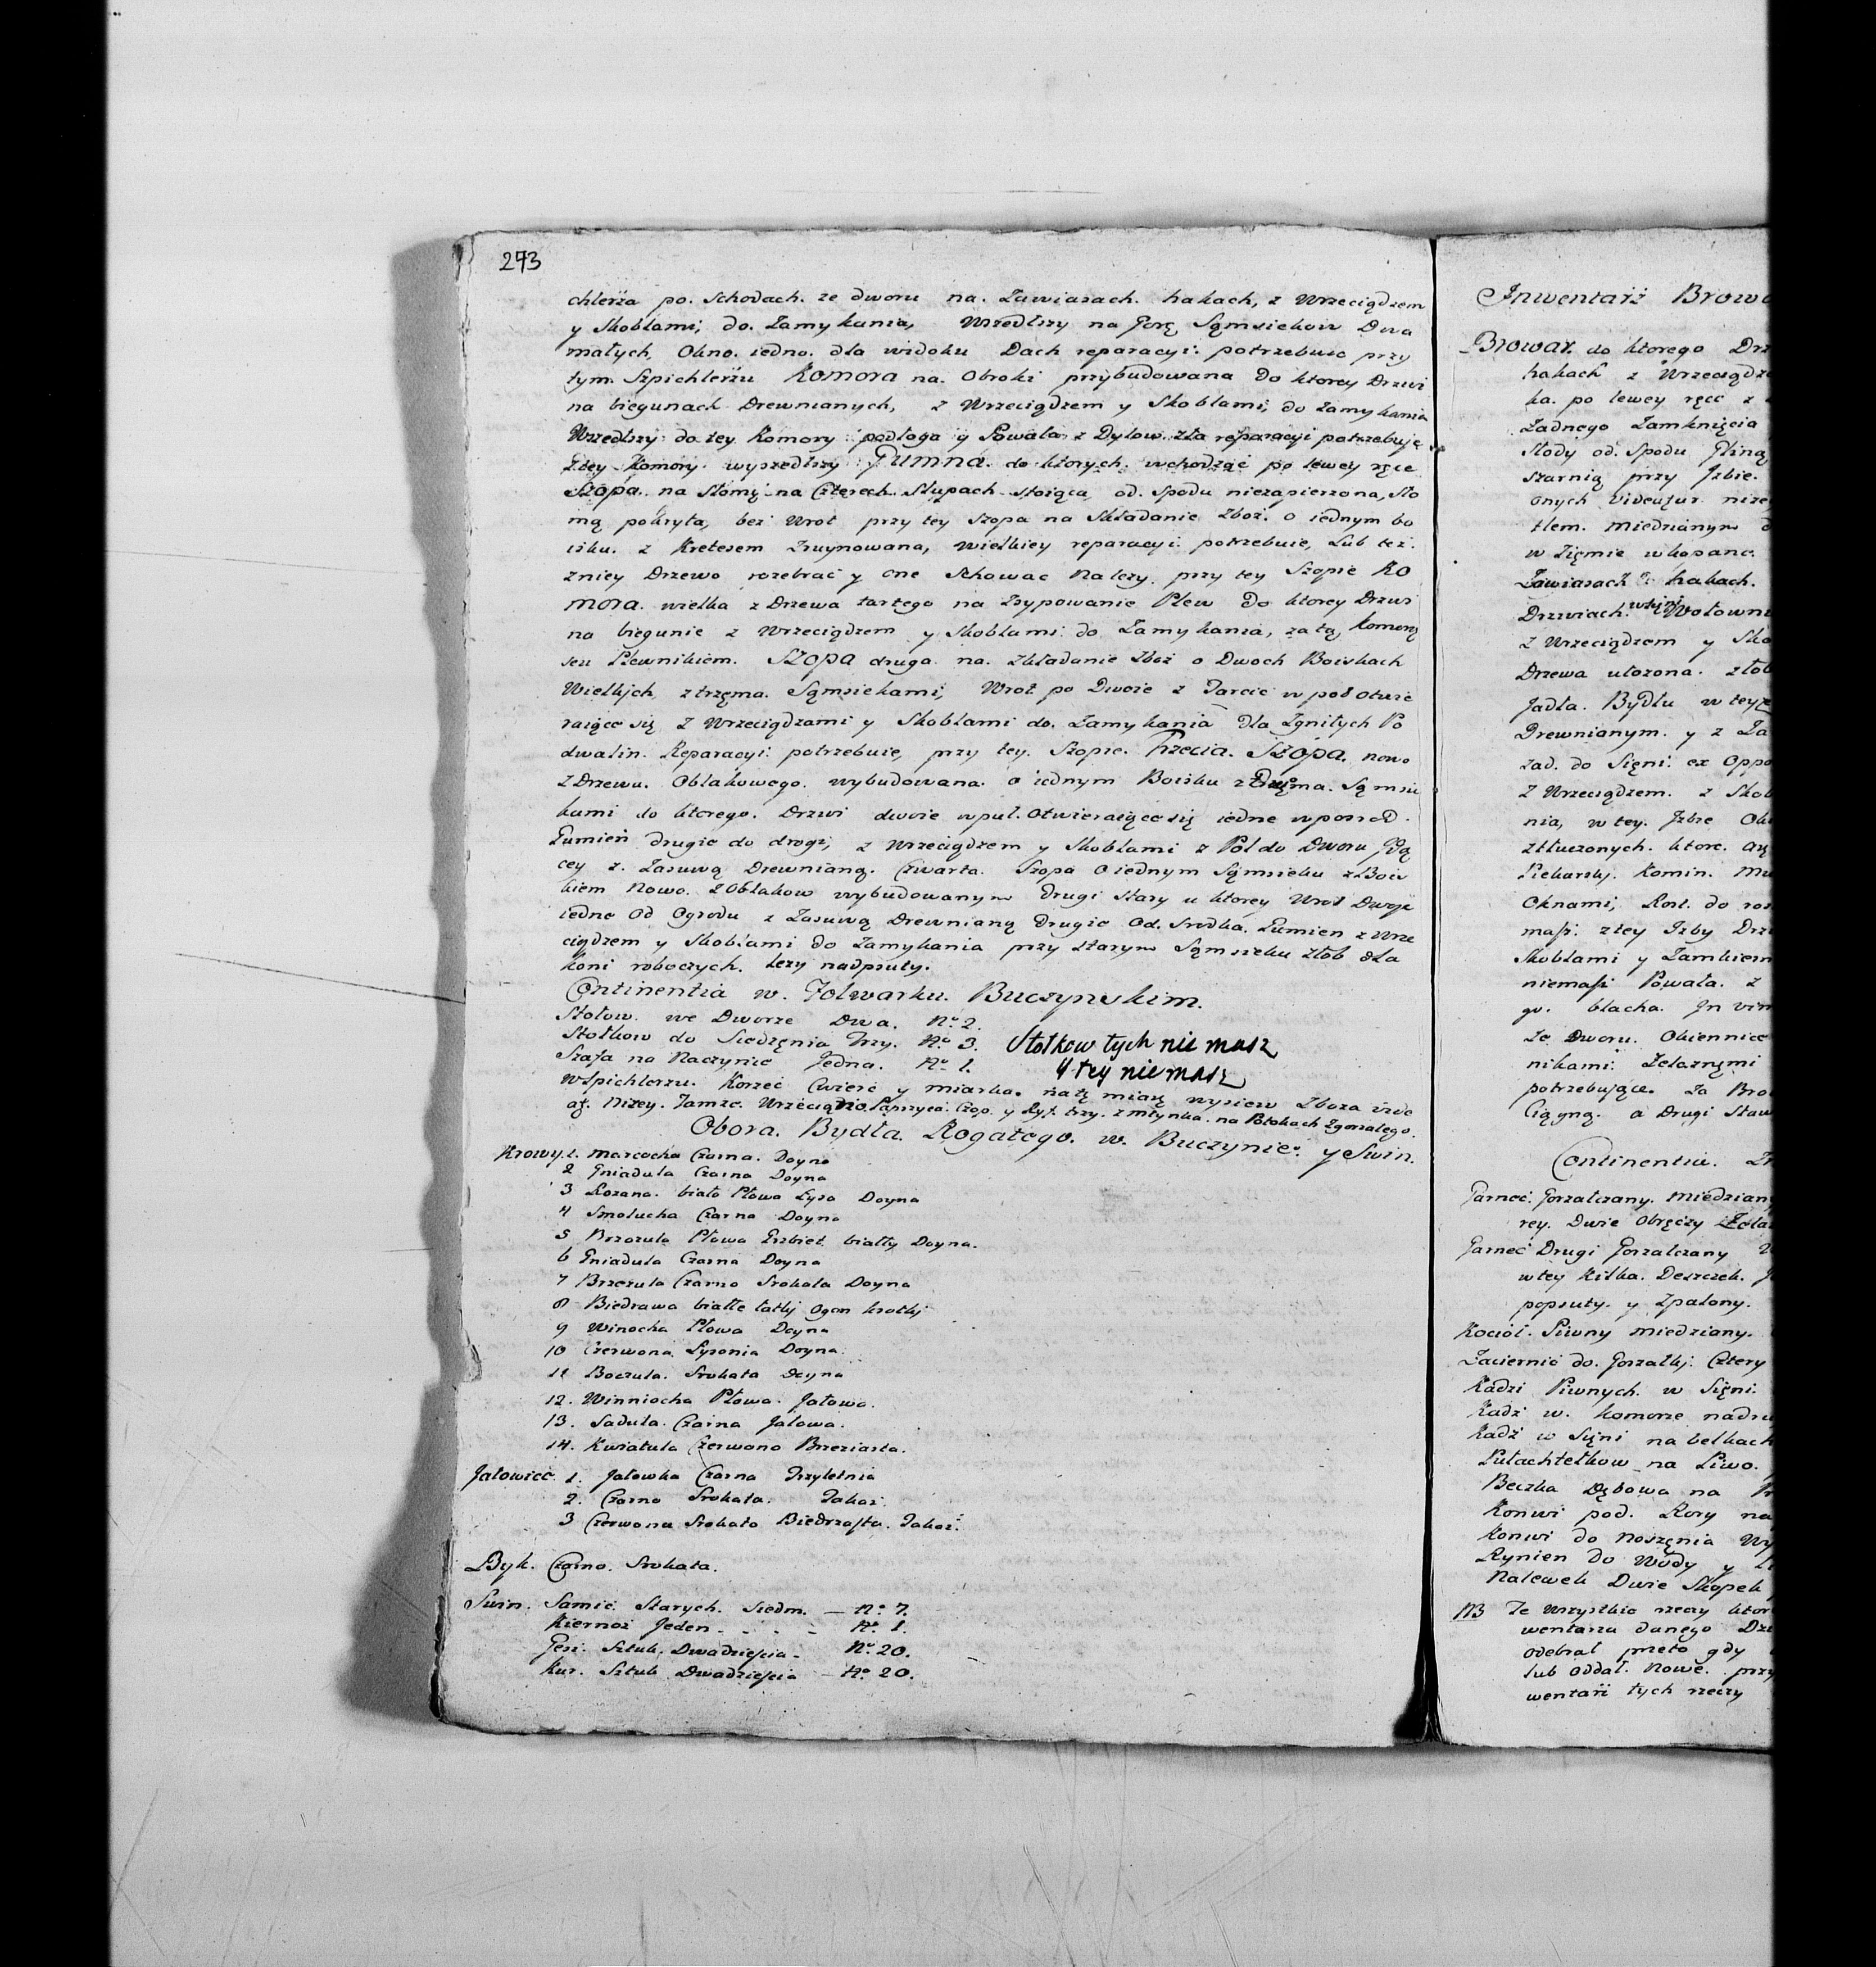 273
chlerza po. Schodach. ze dworu na. Zawiasach. hakach, z Wrzeciądzem
y Skoblami, do. Zamykania, Wszedłszy na Gorę Sąmsiekow Dwa
małych, Okno. iedno. dla widoku Dach reparacyi. potrzebuie przy
tym. Szpichlerzu Komora na. Obroki przybudowana do ktorey Drzwi
na biegunach Drewnianych, z Wrzeciądzem y Skoblami, do Zamykania
Wszedłszy do tey Komory podłoga y Powała z Dylow. zła reparacyi potrzebuje
Z tey Komory wyszedłszy Gumna. do ktorych. wchodząc po lewey ręce
Szopa. na Słomę na Czterech Słupach stoiąca, od. spodu niezapierzona, Sło
mą pokryta, bez Wrot przy tey szopa na Składanie Zboż. o iednym bo
isku. z Kretesem Zruynowana, wielkiey reparacyi potrzebuie, Lub też.
zniey Drzewo rozebrać y one Schować Należy. przy tey Szopie Ko
mora. wielka z Drzewa tartego na Zsypowanie Plew do ktorey Drzwi
na biegunie z Wrzeciądzem y Skoblami do Zamykania, za tą Komorą
seu Plewnikiem. Szopa druga na. Składanie Zboż o Dwoch Boiskach
Wielkjch, ztrzęma. Sąmsiekami, Wrot po Dwoie z Tarcic w pół otwie
raiące się z Wrzeciądzami y Skoblami do. Zamykania dla Zgniłych Po
dwalin. Reparacyi potrzebuie, przy tey. Szopie. Trzecia. Szopa. nowo
z Drzewa. Oblakowego. wybudowana. o iednym Boisku z Dwięma. Sąmsie
kami do ktorego. Drzwi dwoie wpuł. Otwieraiące się iedne wposrod.
Gumien drugie do drogi, z wrzeciądzem y Skoblami z Pol do Dworu Idą
cey z. Zasuwą Drewnianą. Czwarta. Szopa o iednym Sąmsieku z Bois
kiem Nowo. z Oblakow wybudowanym drugi stary u ktorey Wrot Dwoje
iedne Od Ogrodu z Zasuwą Drewnianą Drugie Od. Srodka. Gumien z Wrze
ciądzem y Skoblami do Zamykania przy starym Sąmsieku złob dla
koni roboczych. lezy nadpsuty.
Continentia w. Folwarku. Buczynskim.
Stołow. we Dworze Dwa. No. 2.
Stołkow do Siedzęnia Trzy. No. 3. Stołkow tych nie masz
Szafa na Naczynie Jedna. No. 1. y tey nie masz
w Spichlerzu. Korzec Cwierć y miarka. na tę miarę wysiew Zboza
Niżey. Tamże. Wrzeciądzo. Paprzyca. Czop. y Ryf. trzy. zmłynka. na Potokach Zgorzałego.
Obora. Bydła. Rogatego. w. Buczynie. y Swin.
Krowy. 1. Marcocha Czarna. Doyna
2 Gniadula Czarna Doyna
3 Rozana. biało Płowa Łysa Doyna
4 Smolucha Czarna Doyna
5 Brzozula Płowa Grzbiet białły Doyna.
6 Gniadula Czarna Doyna
7 Brzezula Czarno Srokata Doyna
8 Biedrawa białłe łatkj Ogon krotkj
9 Winocha Płowa Doyna
10 Czerwona Łysonia Doyna.
11 Boczula. Srokata Doyna
12. Winniocha Płowa. Jałowa.
13. Sadula. Czarna Jałowa.
14. Kwiatula Czerwono Brzeziasta.
Jałowice. 1. Jałowka Czarna Trzyletnia
2. Czarno Srokata. Takaż
3 Czerwono Srokato Biedrzasta. Takaż.
Byk. Czarno. Srokata.
Swin. Samic. Starych. siedm. — No. 7.
Kiernoz Jeden - - - - No. 1.
Gęsi. Sztuk. Dwadzieścia - No. 20.
Kur. Sztuk Dwadzieścia — No. 20.
Inwentarż Browa
Browar. do ktorego Drz
hakach z Wrzeciądze
ka. po lewey ręce z
Zadnego Zamknięcia
Słody od. Spodu Gliną
szarnią przy Izbie.
onych Videatur. niże
tlem. miedzianym d
w Ziemie wkopane.
Zawiasach hakach.
Drzwiach. Wołowni
z Wrzeciądzem y Sko
Drzewa ułozona. złob
Jadła. Bydłu w tey
Drewnianym. y z Za
zad. do Sięni. ex Oppo
z Wrzeciądzem. z Skob
nia, w tey. Izbie Okn
ztłuczonych. ktore.
Piekarskj. Komin. Mu
Oknami, Rost. do
masz. z tey Izby Drz
Skoblami y Zamkiem
niemasz Powała. z
go. blacha. In vim
ze Dworu. Okiennice
nikami. Zelaznymi
potrzebujące. Za Bro
Ciągną. a Drugi Staw
Continentia. Zn
Garnec. Gorzałczany. miedziany
rey. Dwie Obręczy Żela
Garnec Drugi Gorzałczany
w tey kilka. Deszczek.
popsuty. y Zpalony.
Kocioł. Piwny miedziany.
Zaciernic do. Gorzałkj. Cztery
Kadzi Piwnych. w Sięni.
Kadź w. komorze nadru
Kadź w Sięni na belkach
Pułachtelkow na Piwo.
Beczka Dębowa na
Konwi pod. Rory na
Konwi do noszęnia Wy
Rynien do Wody y
Nalewek Dwie Skopek
NB Te Wszystkie rzeczy ktor
wentarza danego Dzie
odebrał przeto gdy
lub oddał. Nowe. przy
wentarz tych rzeczy